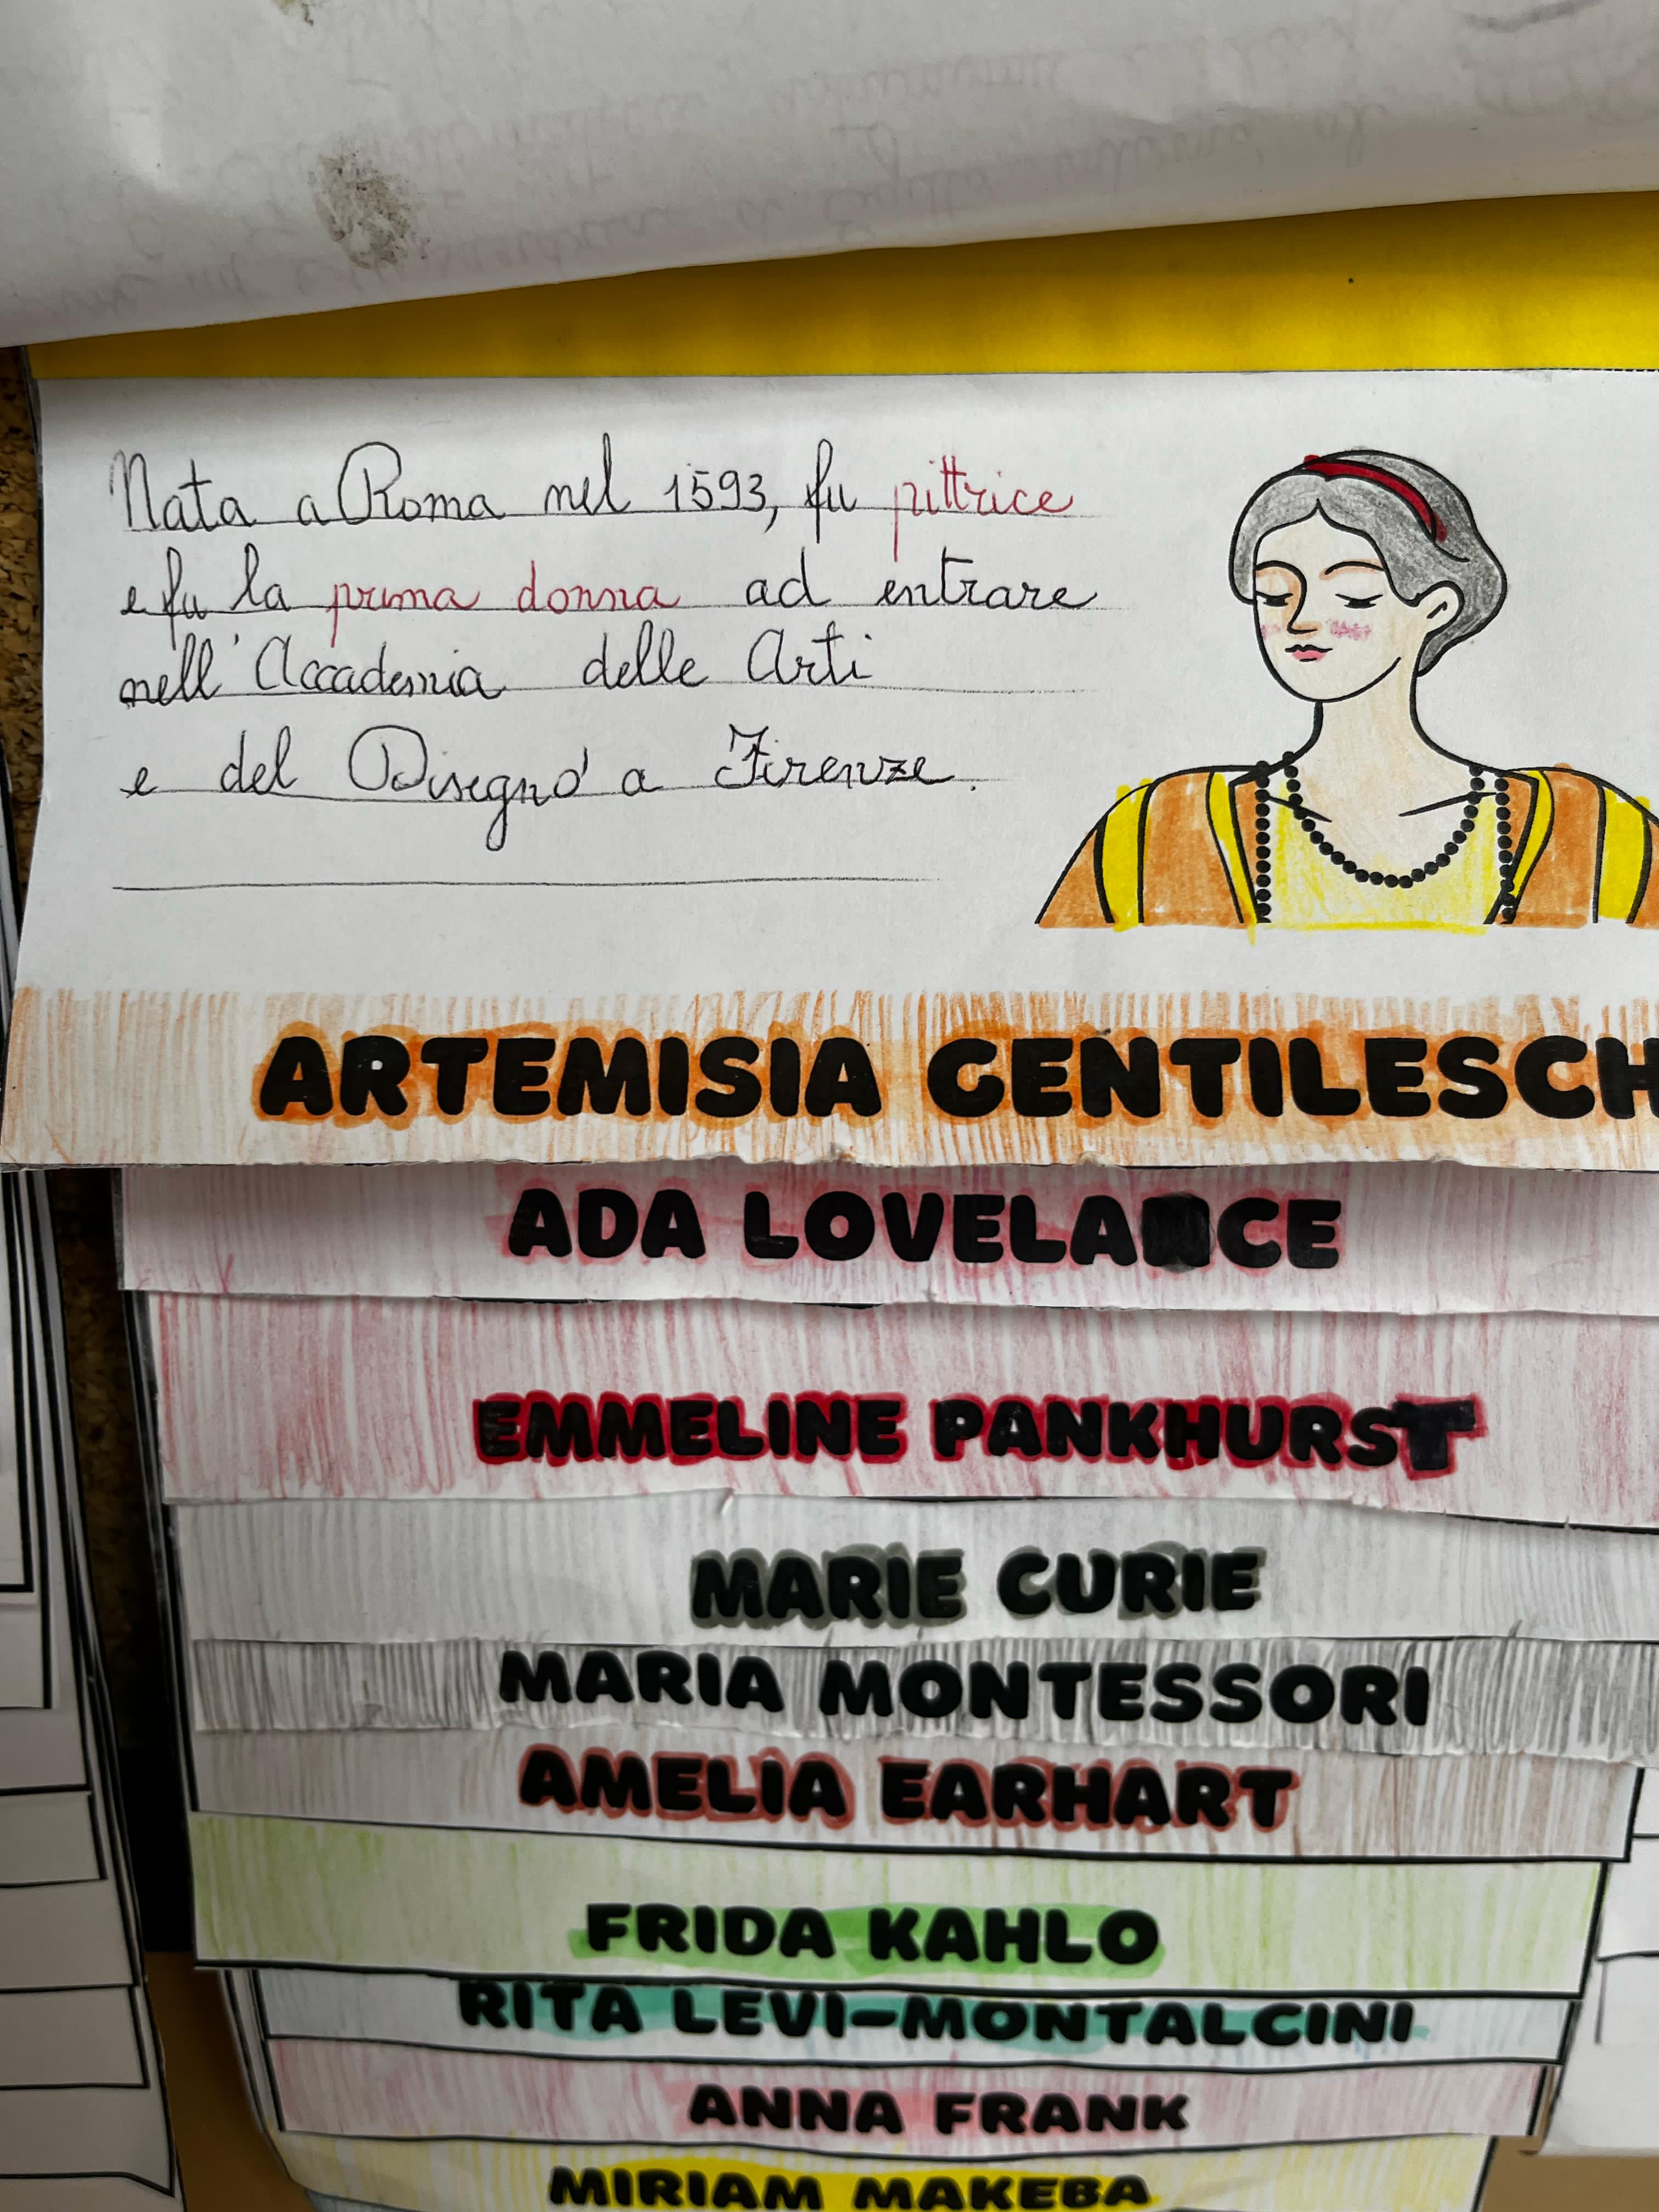 Nata a Roma nel 1593, fu pittrice
e fu la prima donna ad entrare
nell'Accademia delle Arti
e del Disegno a Firenze.
ARTEMISIA GENTILESCH
ADA LOVELACE
EMMELINE PANKHURST
MARIE CURIE
MARIA MONTESSORI
AMELIA EARHART
FRIDA KAHLO
RITA LEVI-MONTALCINI
ANNA FRANK
MIRIAM MAKEBA